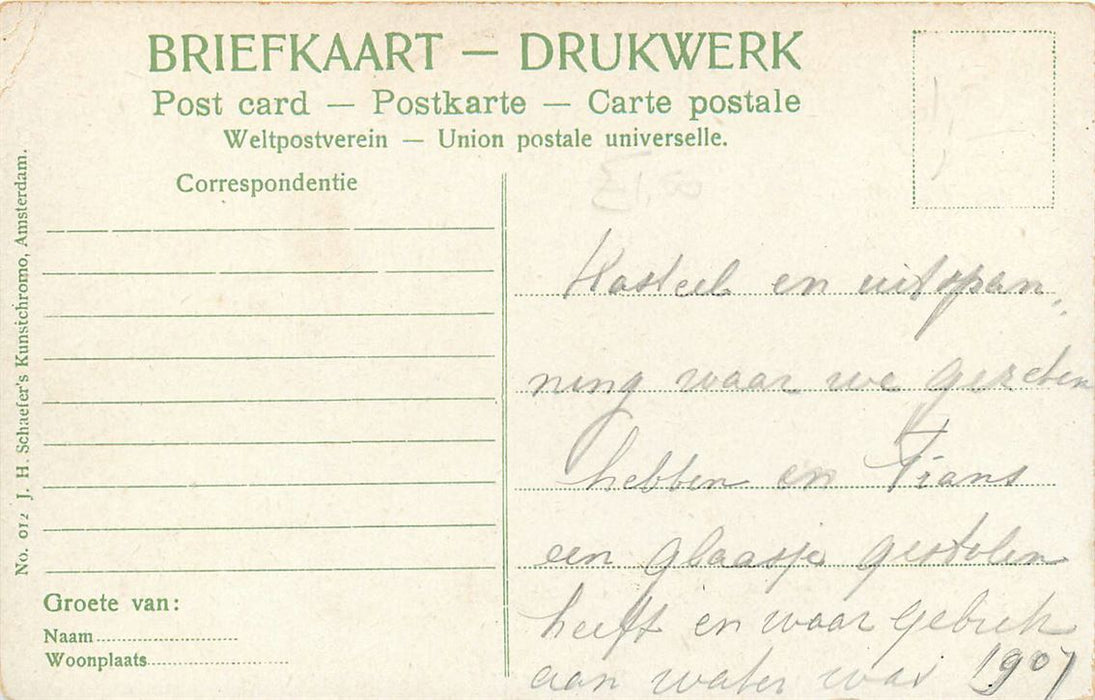 BRIEFKAART — DRUKWERK
Post card — Postkarte — Carte postale
Weltpostverein — Union postale universelle.
Correspondentie
No. 012 J. H. Schaefer's Kunstchromo, Amsterdam.
Groete van:
Naam
Woonplaats
Kasteel en uitspan,,
ning waar we gezeten
hebben en Frans
een glaasje gestolen
heeft en waar gebrek
aan water was 1907